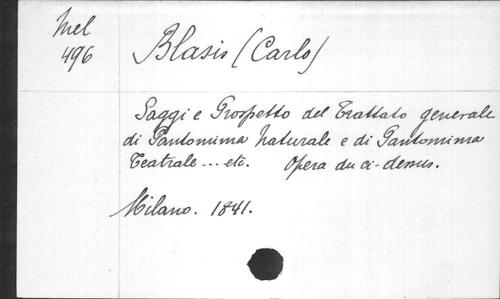 Mel
496
Blasis (Carlo)
Saggi e Prospetto del Trattato generale
di Pantomima Naturale e di Pantomima
Teatrale ... etc. Opera du ci-dessus.
Milano. 1841.